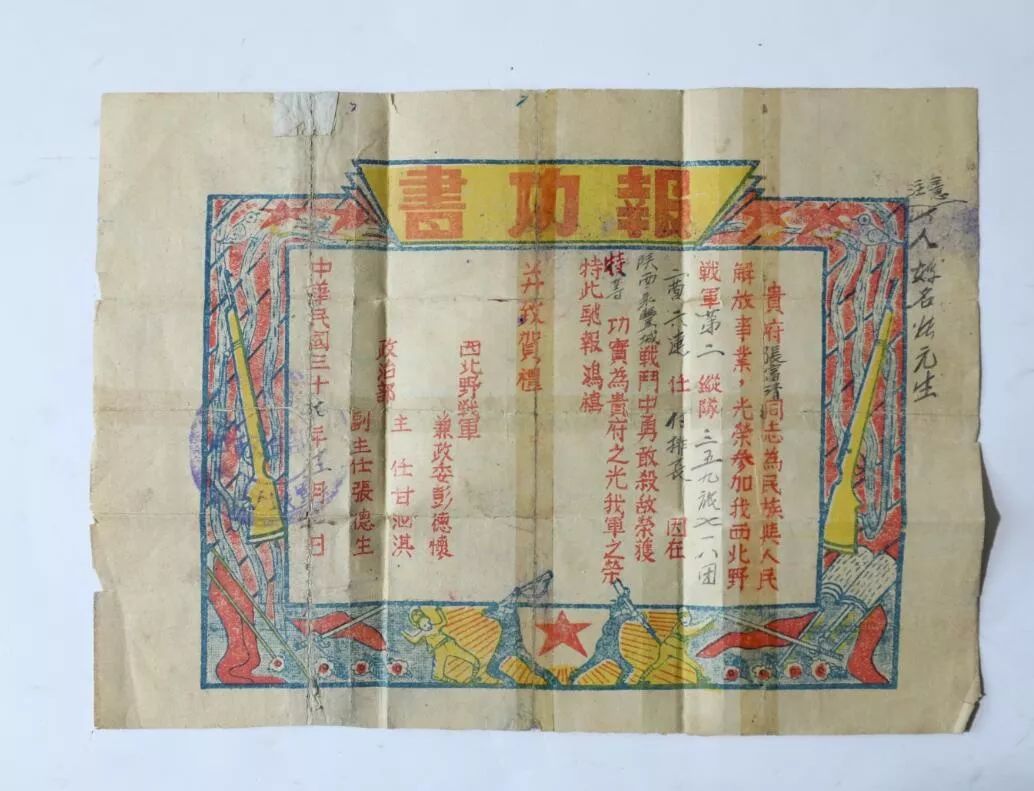 報功書
貴府張富清同志為民族與人民
解放事業，光榮參加我西北野
戰軍第二縱隊三五九旅七一八團
二營六連任副排長因在
陝西永豐城戰鬥中勇敢殺敵榮獲
特等功實為貴府之光我軍之榮
特此馳報鴻禧
并致賀禮
西北野戰軍
兼政委彭德懷
政治部
主任甘泗淇
副主任張德生
中華民國三十年月日
注意
人姓名元生